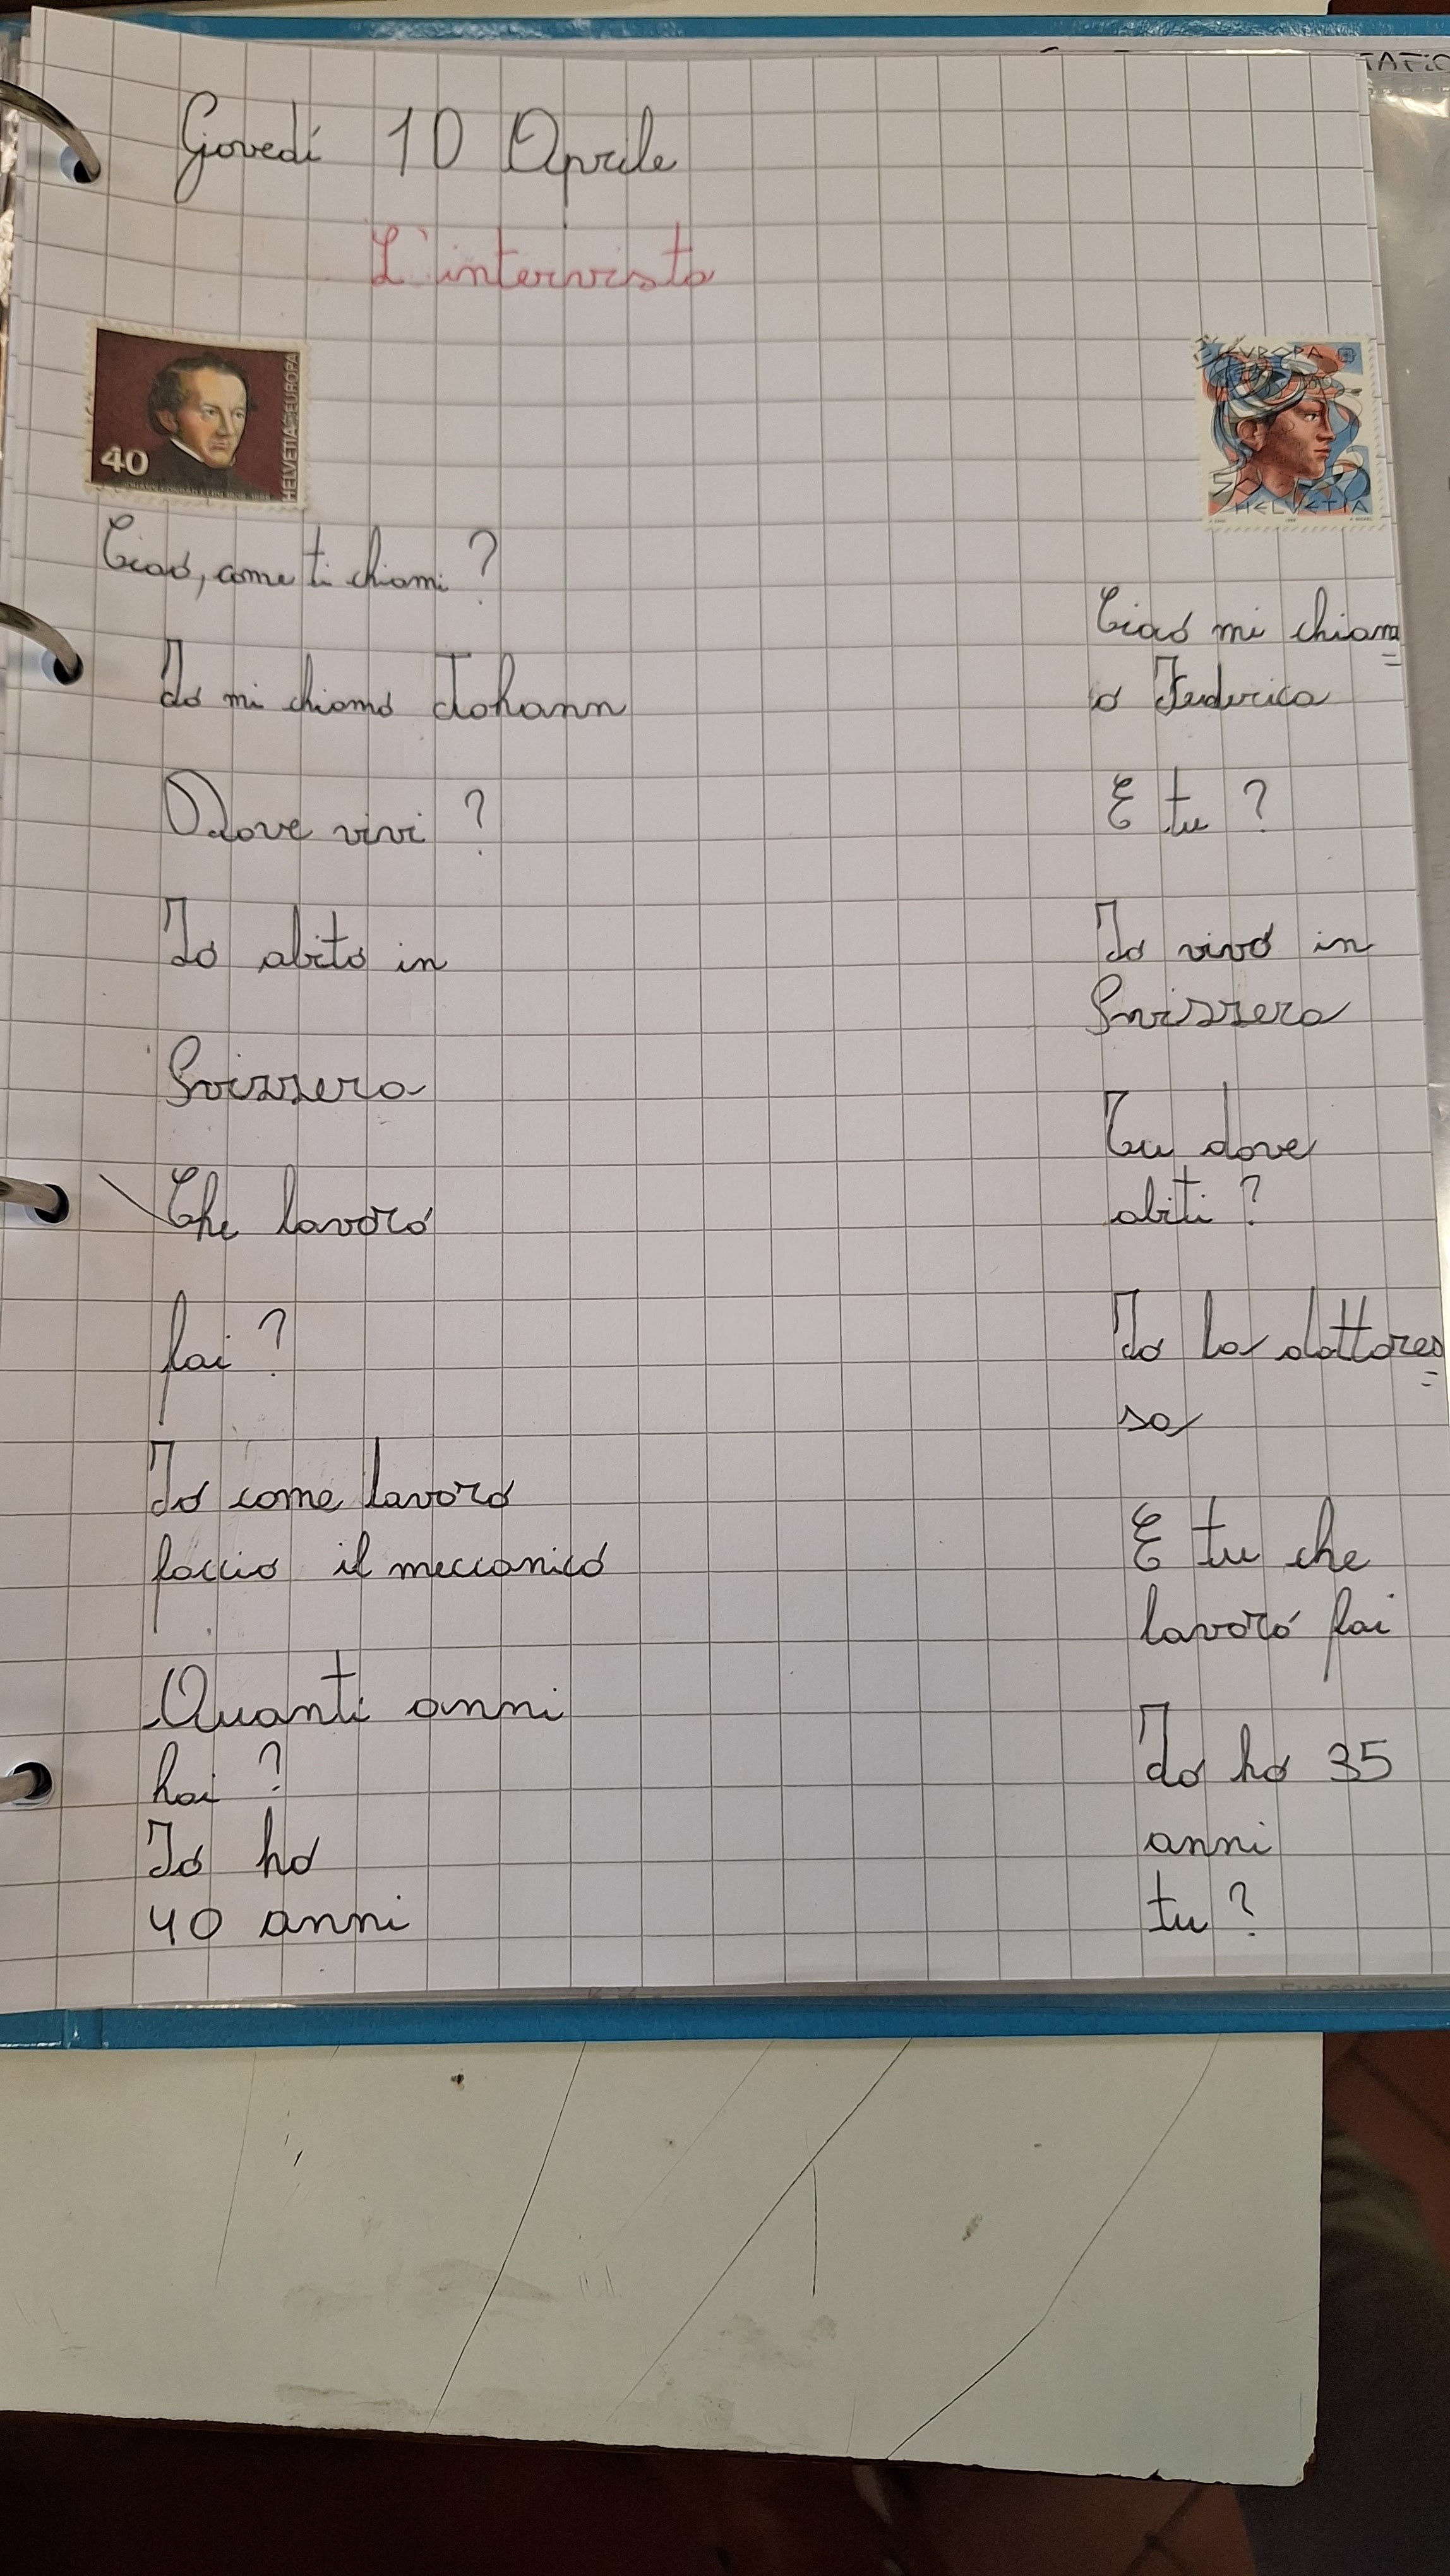 TATIO
Giovedí 10 Aprile
L'intervista
40
HELVETIA EUROPA
EUROPA
50
HELVETIA
Ciao, come ti chiami ?
Ciao mi chiam=
o Federica
Io mi chiamo Johann
E tu ?
Dove vivi ?
Io vivo in
Svizzera
Io abito in
Svizzera
Tu dove
abiti ?
Che lavoro
fai ?
Io la dottores=
sa
Io come lavoro
faccio il meccanico
E tu che
lavoro fai
Quanti anni
hai ?
Io ho 35
anni
tu ?
Io ho
40 anni